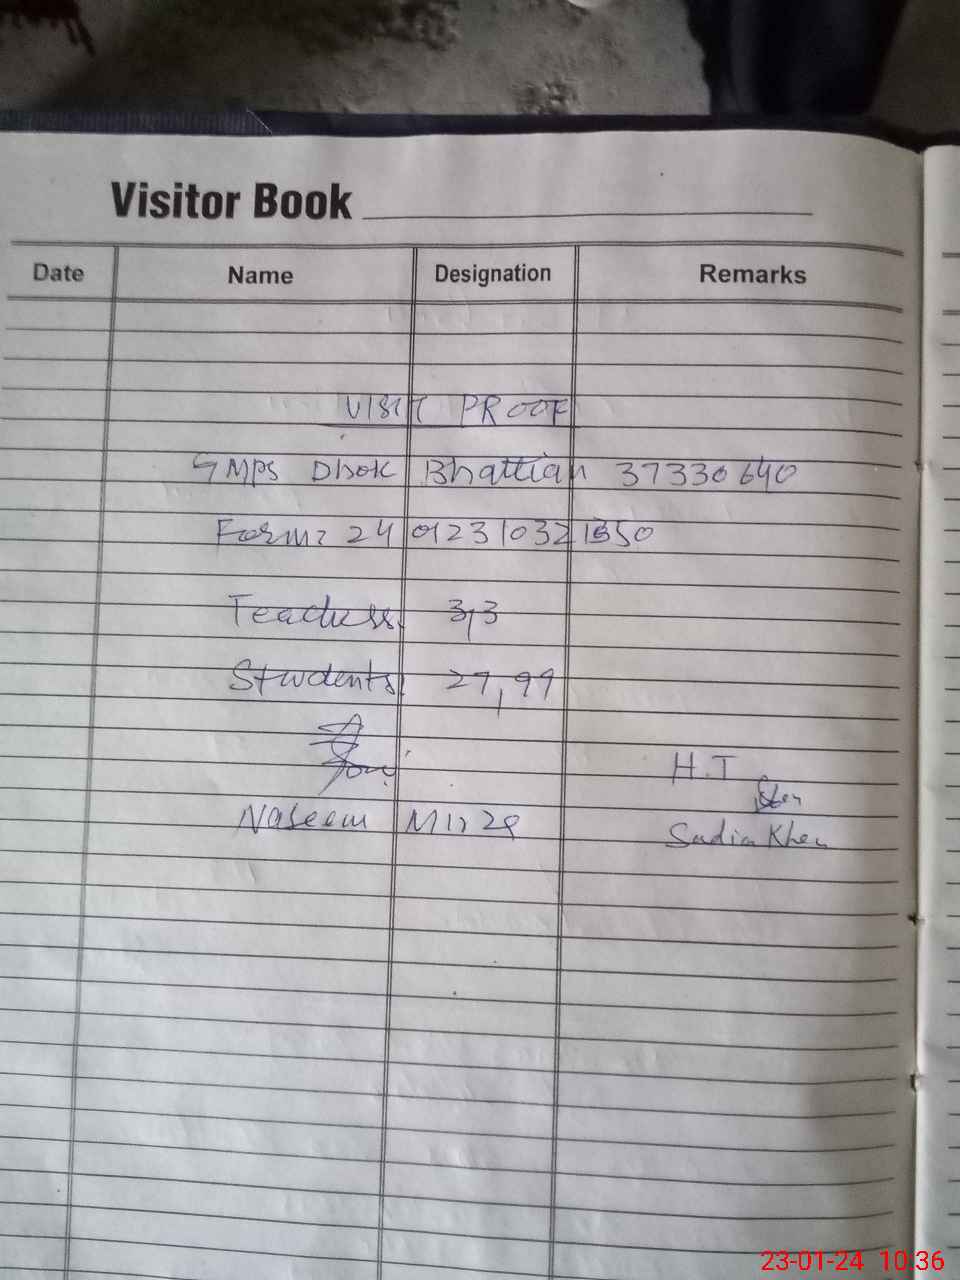 Visitor Book
Date Name Designation Remarks
VISIT PROOF
GMPS Dhok Bhattian 37330640
Form: 24 01231032 1550
Teachers 3,3
Students 27,99
H.T
Naseem Mirza
Sadia Khan
23-01-24 10:36